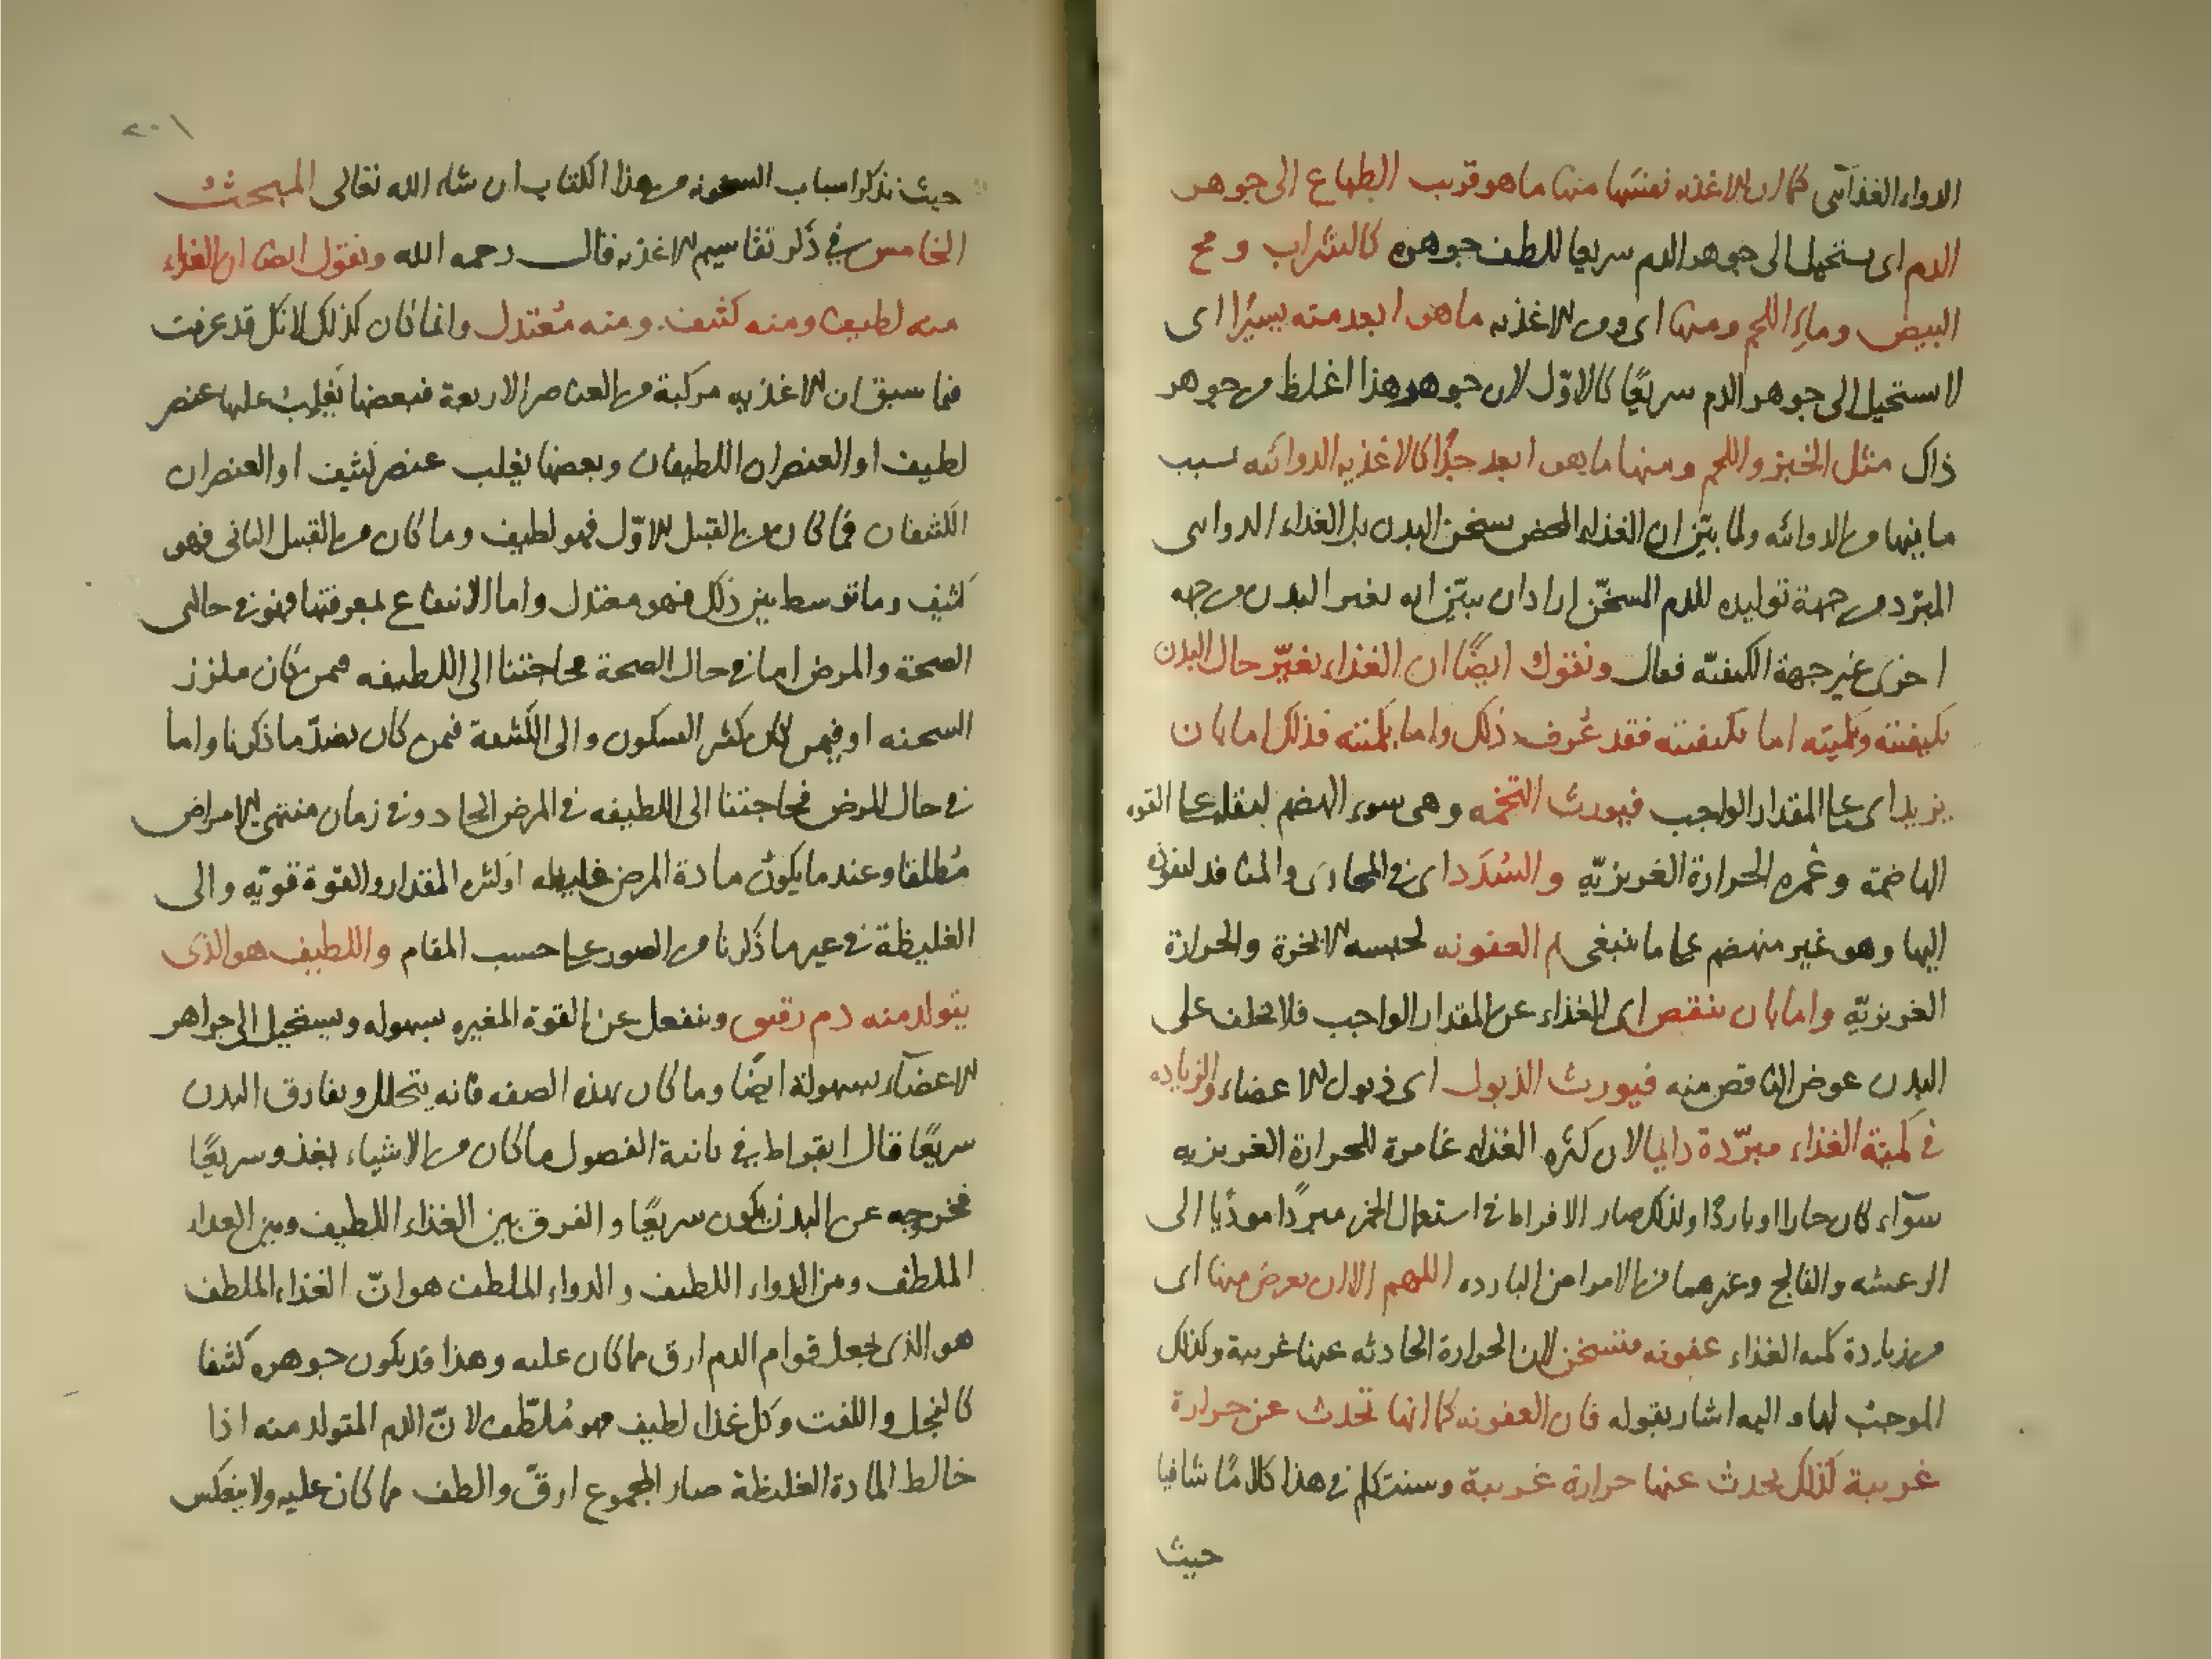 الدواء الغذائى كما ان الاغذيه نفسها منها ما هو قريب الطباع الى جوهر
الدم اى يستحيل الى جوهر الدم سريعا للطف جوهره كالشراب و مح
البيض وماء اللحم ومنها اى ومن الاغذيه ما هو ابعد منه يسيرًا اى
لا ستحيل الى جوهر الدم سريعًا كالاوّل لان جوهر هذا اغلظ من جوهر
ذاك مثل الخبز و اللحم ومنها ما هو ابعد جدًا كالاغذيه الدوائيه لسبب
ما فيها من الدوائيه ولما بيّن ان الغذاء المحض يسخن البدن بل الغذاء الدوائى
المبّرد من جهة توليده للدم المسخّن اراد ان يبيّن انه يغير البدن من جهه
اخرى غير جهة الكيفيّه فقال ونقول ايضًا ان الغذاء يغيّر حال البدن
بكيفيته وكميته اما بكيفيته فقد عُرف ذلك واما بكميته فذلك اما بان
يزيد اى على المقدار الواجب فيورث التخمه وهى سوء الهضم لثقله على القوه
الهاضمة و غمره الحرارة الغريزيّه والسُدَد اى فى المجارى والمنافذ لنفوذه
اليها وهو غير منهضم على ما ينبغى ثم العفونه لحبسه الابخرة والحرارة
الغريزيّه واما بان ينقص اى الغذاء عن المقدار الواجب فلا يخلف على
البدن عوض الناقص منه فيورث الذبول اى ذبول الاعضاء والزياده
فى كمية الغذاء مبرّدة دايما لان كثره الغذاء غامرة للحرارة الغريزيه
سوآء كان حارا او باردًا ولذلك صار الافراط فى استعمال الخمر مبردًا مودّيا الى
الرعشه والفالج وغيرهما من الامراض البارده اللهم الا ان يعرض منها اى
من زيادة كميه الغذاء عفونه فتسخن لان الحرارة الحادثه عنها غريبة وكذلك
الموجب لها و اليه اشار بقوله فان العفونه كما انها تحدث عن حرارة
غريبة كذلك يحدث عنها حرارة غريبة وسنتكلم فى هذا كلامًا شافيا
حيث
٢٠١
حيث نذكر اسباب من هذا الكتاب ان شاء الله تعالى المبحث
الخامس فى ذكر تقاسيم الاغذيه قال رحمه الله ونقول ايضا ان الغذاء
منه لطيف ومنه كثيف ومنه مُعتدل وانما كان كذلك لانك قد عرفت
فيما سبق ان الاغذيه مركبة من العناصر الاربعة فبعضها يَغلِبُ عليها عنصر
لطيف او العنصران اللطيفان وبعضها يغلب عنصر كثيف او العنصران
الكثيفان فما كان من القبيل الاوّل فهو لطيف وما كان من القبيل الثانى فهو
كثيف وما توسط بين ذلك فهو معتدل واما الانتفاع بمعرفتها فهو فى حالتى
الصحة والمرض اما فى حال الصحة فحاجتنا الى اللطيفه فيمن كان ملزز
السحنه او فيمن كان كثير السكون والى الكثيفة فيمن كان بضدّ ما ذكرنا واما
فى حال المرض فحاجتنا الى اللطيفه فى المرض الحاد وفى زمان منتهى الامراض
مُطلقا وعند ما يكون مادة المرض غليظه او كثيره المقدار والقوة قويّه والى
الغليظة فى غير ما ذكرنا من الصور على حسب المقام واللطيف هو الذى
يتولد منه دم رقيق وينفعل عن القوة المغيره بسهوله ويستحيل الى جواهر
الاعضآء بسهولة ايضًا وما كان بهذه الصفه فانه يتحلل ويفارق البدن
سريعًا قال ابقراط فى ثانية الفصول ما كان من الاشياء يغذو سريعًا
فخروجه عن البدن يكون سريعًا و الفرق بين الغذاء اللطيف وبين الغذاء
الملطف وبين الدواء اللطيف والدواء الملطف هو انّ الغذاء الملطف
هو الذى يجعل قوام الدم ارق مما كان عليه وهذا قد يكون جوهره كثيفا
كالفجل واللفت وكل غذاء لطيف فهو مُلطّف لانّ الدم المتولد منه اذا
خالط المادة الغليظة صار المجموع ارقّ والطف مما كان عليه ولا ينعكس